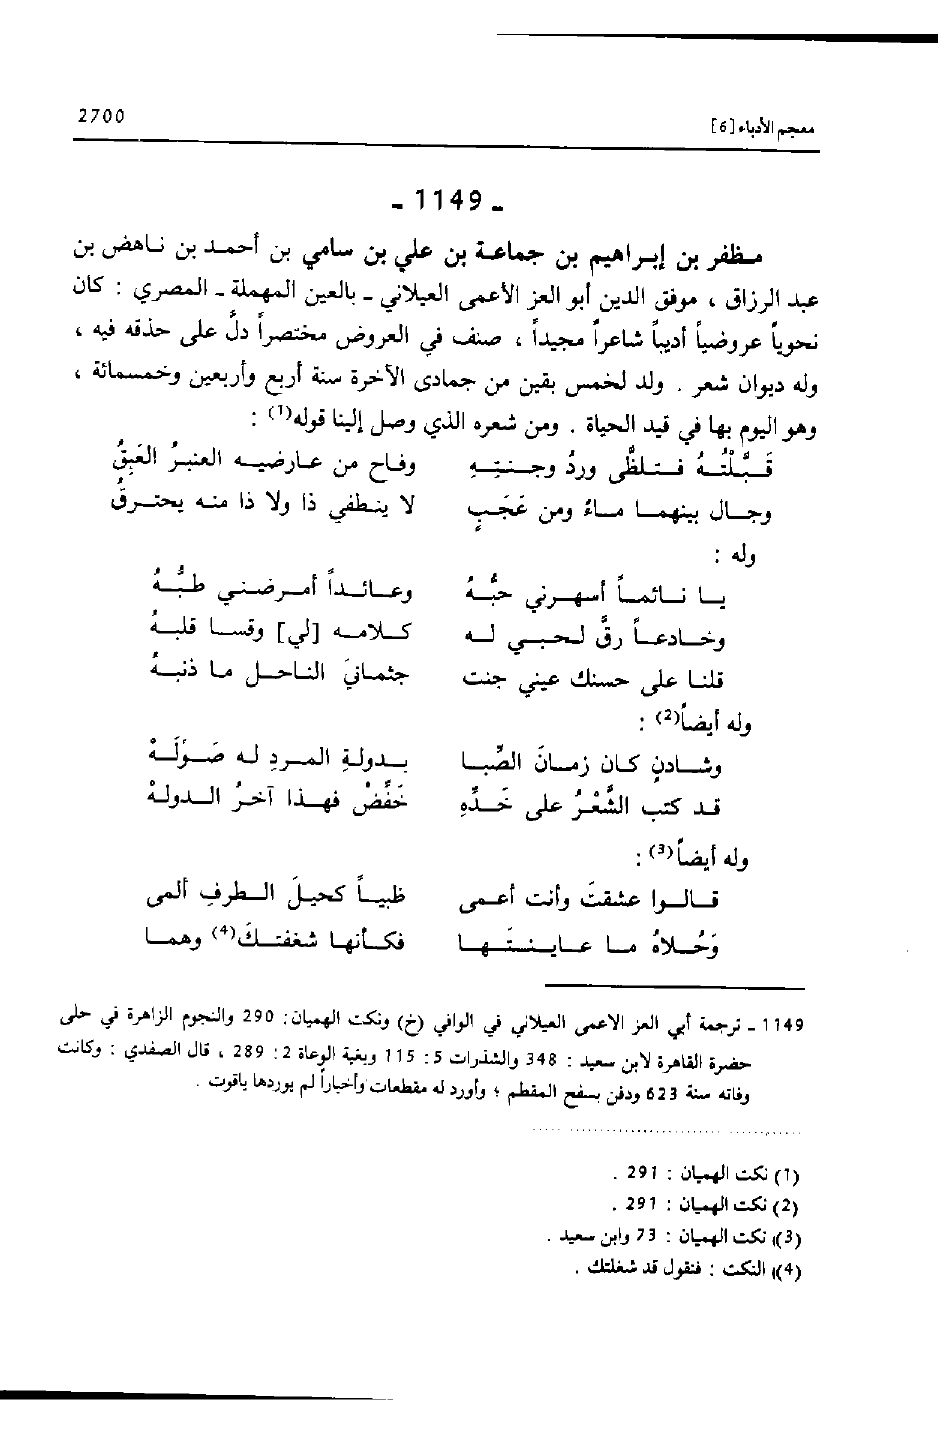 معجم الأدباء [6]
2700
- 1149 -
مظفر بن إبراهيم بن جماعة بن علي بن سامي بن أحمد بن ناهض بن
عبد الرزاق ، موفق الدين أبو العز الأعمى العيلاني - بالعين المهملة - المصري : كان
نحوياً عروضياً أديباً شاعراً مجيداً ، صنف في العروض مختصراً دلَّ على حذقه فيه ،
وله ديوان شعر . ولد لخمس بقين من جمادى الآخرة سنة أربع وأربعين وخمسمائة ،
وهو اليوم بها في قيد الحياة . ومن شعره الذي وصل إلينا قوله(1) :
قَبَّلْتُهُ فتلظَّى وردُ وجنتِهِ وفاح من عارضيه العنبرُ العَبِقُ
وجال بينهما ماءٌ ومن عَجَبٍ لا ينطفي ذا ولا ذا منه يحترقُ
وله :
يا نائماً أسهرني حبُّهُ وعائداً أمرضني طبُّهُ
وخادعاً رقَّ لحبي له كلامه [لي] وقسا قلبهُ
قلنا على حسنك عيني جنت جثمانيَ الناحل ما ذنبهُ
وله أيضاً(2) :
وشادنٍ كان زمانَ الصِّبا بدولةِ المردِ له صَوْلَهْ
قد كتب الشَّعْرُ على خَدَّهِ خَفِّضْ فهذا آخرُ الدولهْ
وله أيضاً(3) :
قالوا عشقتَ وأنت أعمى ظبياً كحيلَ الطرفِ ألمى
وَحُلاهُ ما عاينتَها فكأنها شغفتكَ(4) وهما
1149 - ترجمة أبي العز الاعمى العيلاني في الوافي (خ) ونكت الهميان: 290 والنجوم الزاهرة في حلى
حضرة القاهرة لابن سعيد : 348 والشذرات 5: 115 وبغية الوعاة 2: 289 ، قال الصفدي : وكانت
وفاته سنة 623 ودفن بسفح المقطم ؛ وأورد له مقطعات وأخباراً لم يوردها ياقوت .
(1) نكت الهميان : 291 .
(2) نكت الهميان : 291 .
(3) نكت الهميان : 73 وابن سعيد .
(4) النكت : فنقول قد شغلتك .